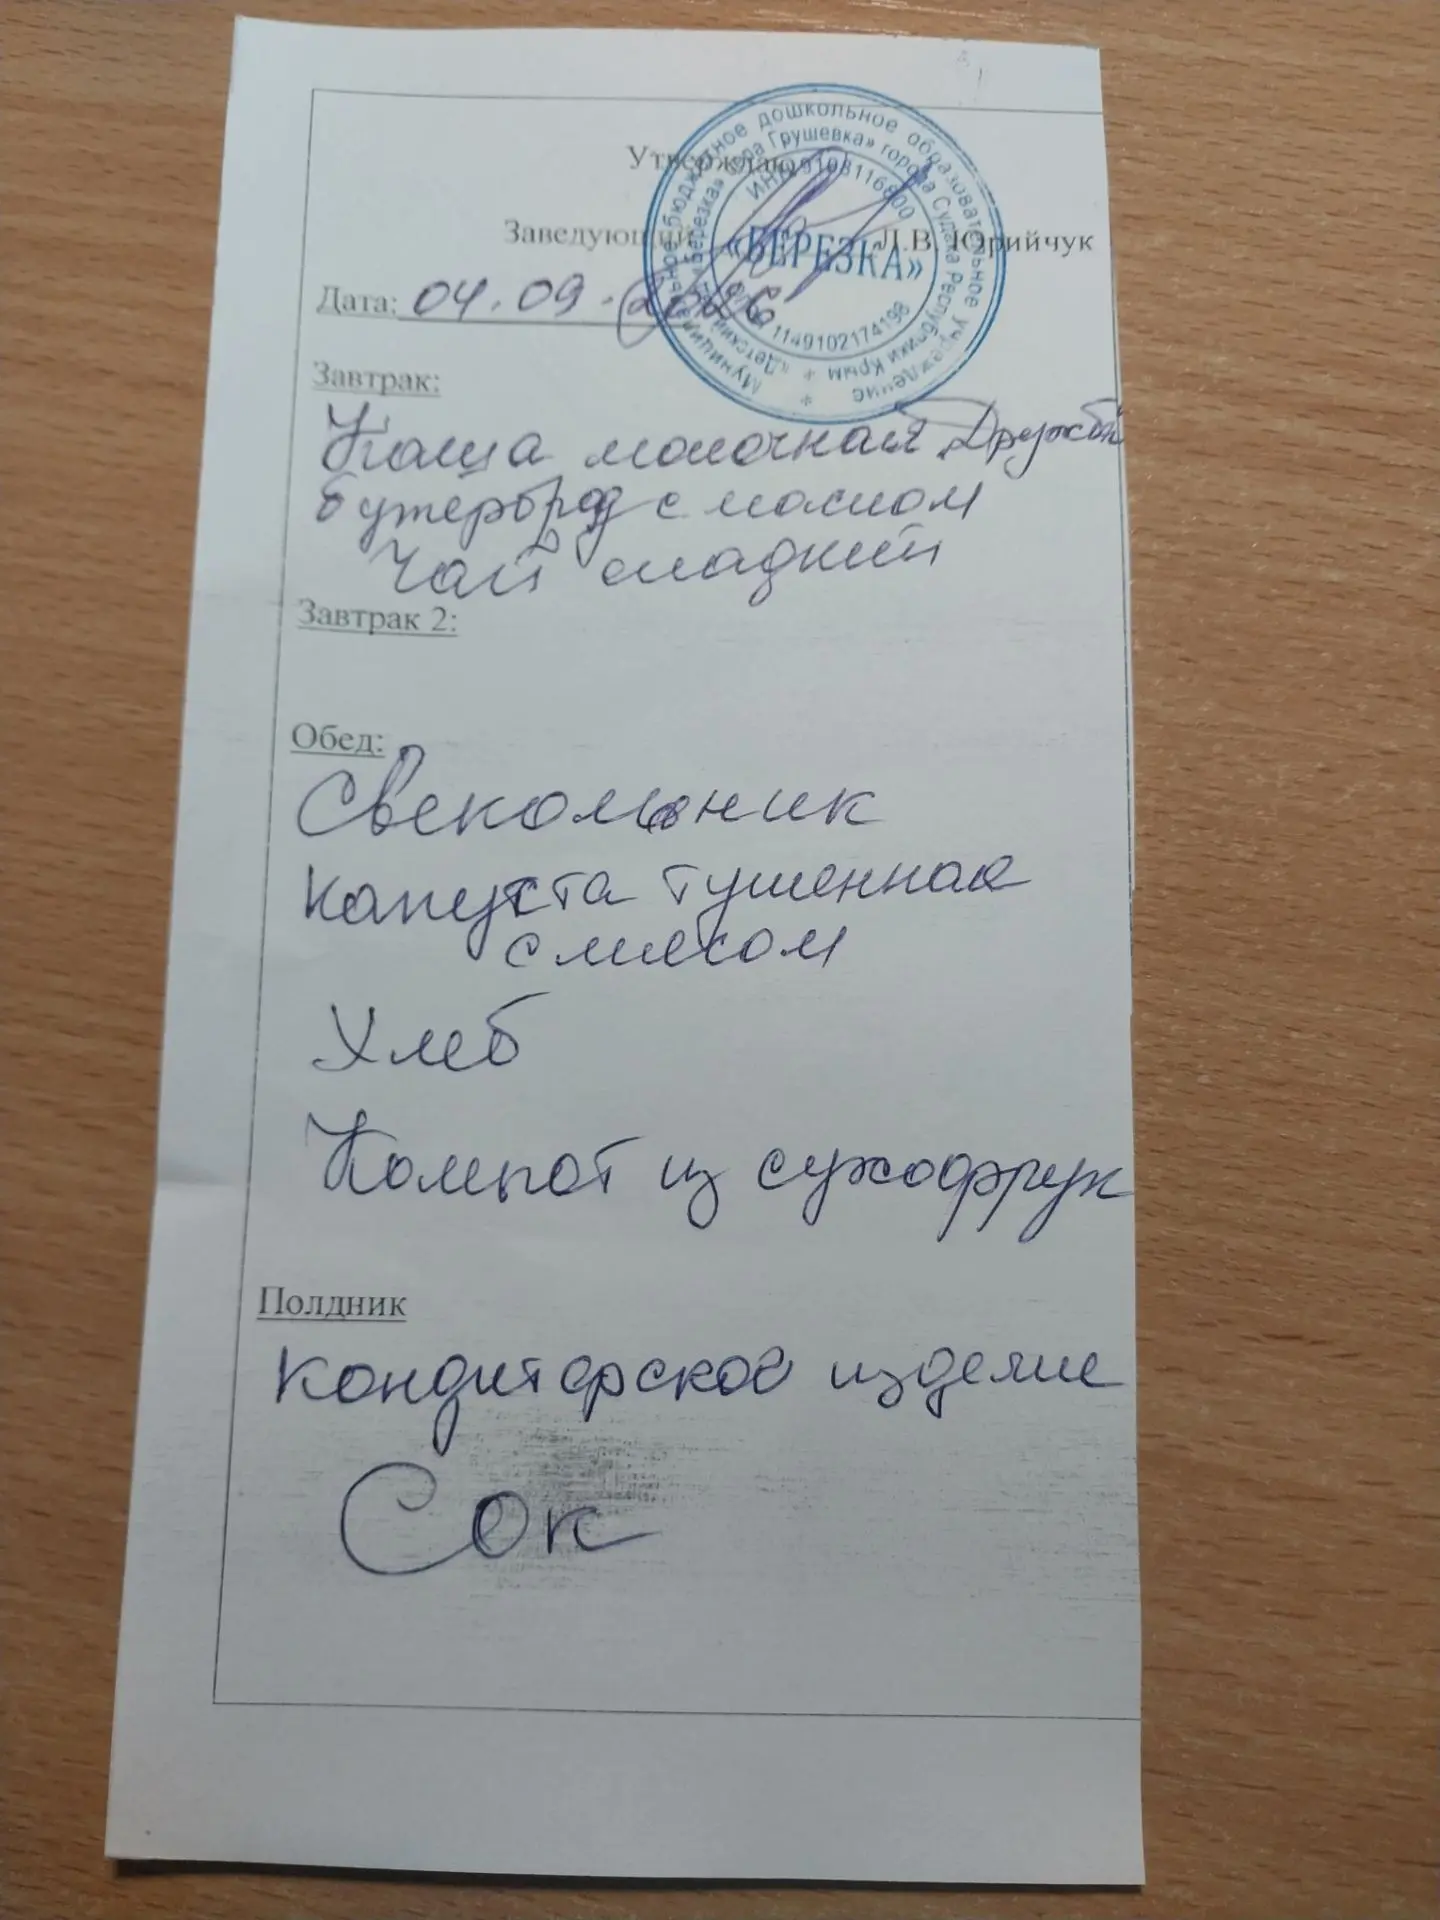 Утверждаю
Заведующий Л.В. Юрийчук
Дата: 04.09.2026
Муниципальное бюджетное дошкольное образовательное учреждение
«Детский сад «Березка» села Грушевка» города Судака Республики Крым
ИНН 9108116800
«БЕРЕЗКА»
1149102174198
Завтрак:
Каша молочная Дружба
бутерброд с маслом
Чай сладкий
Завтрак 2:
Обед:
Свекольник
Капуста тушенная
с мясом
Хлеб
Компот из сухофрук
Полдник
Кондитерское изделие
Сок